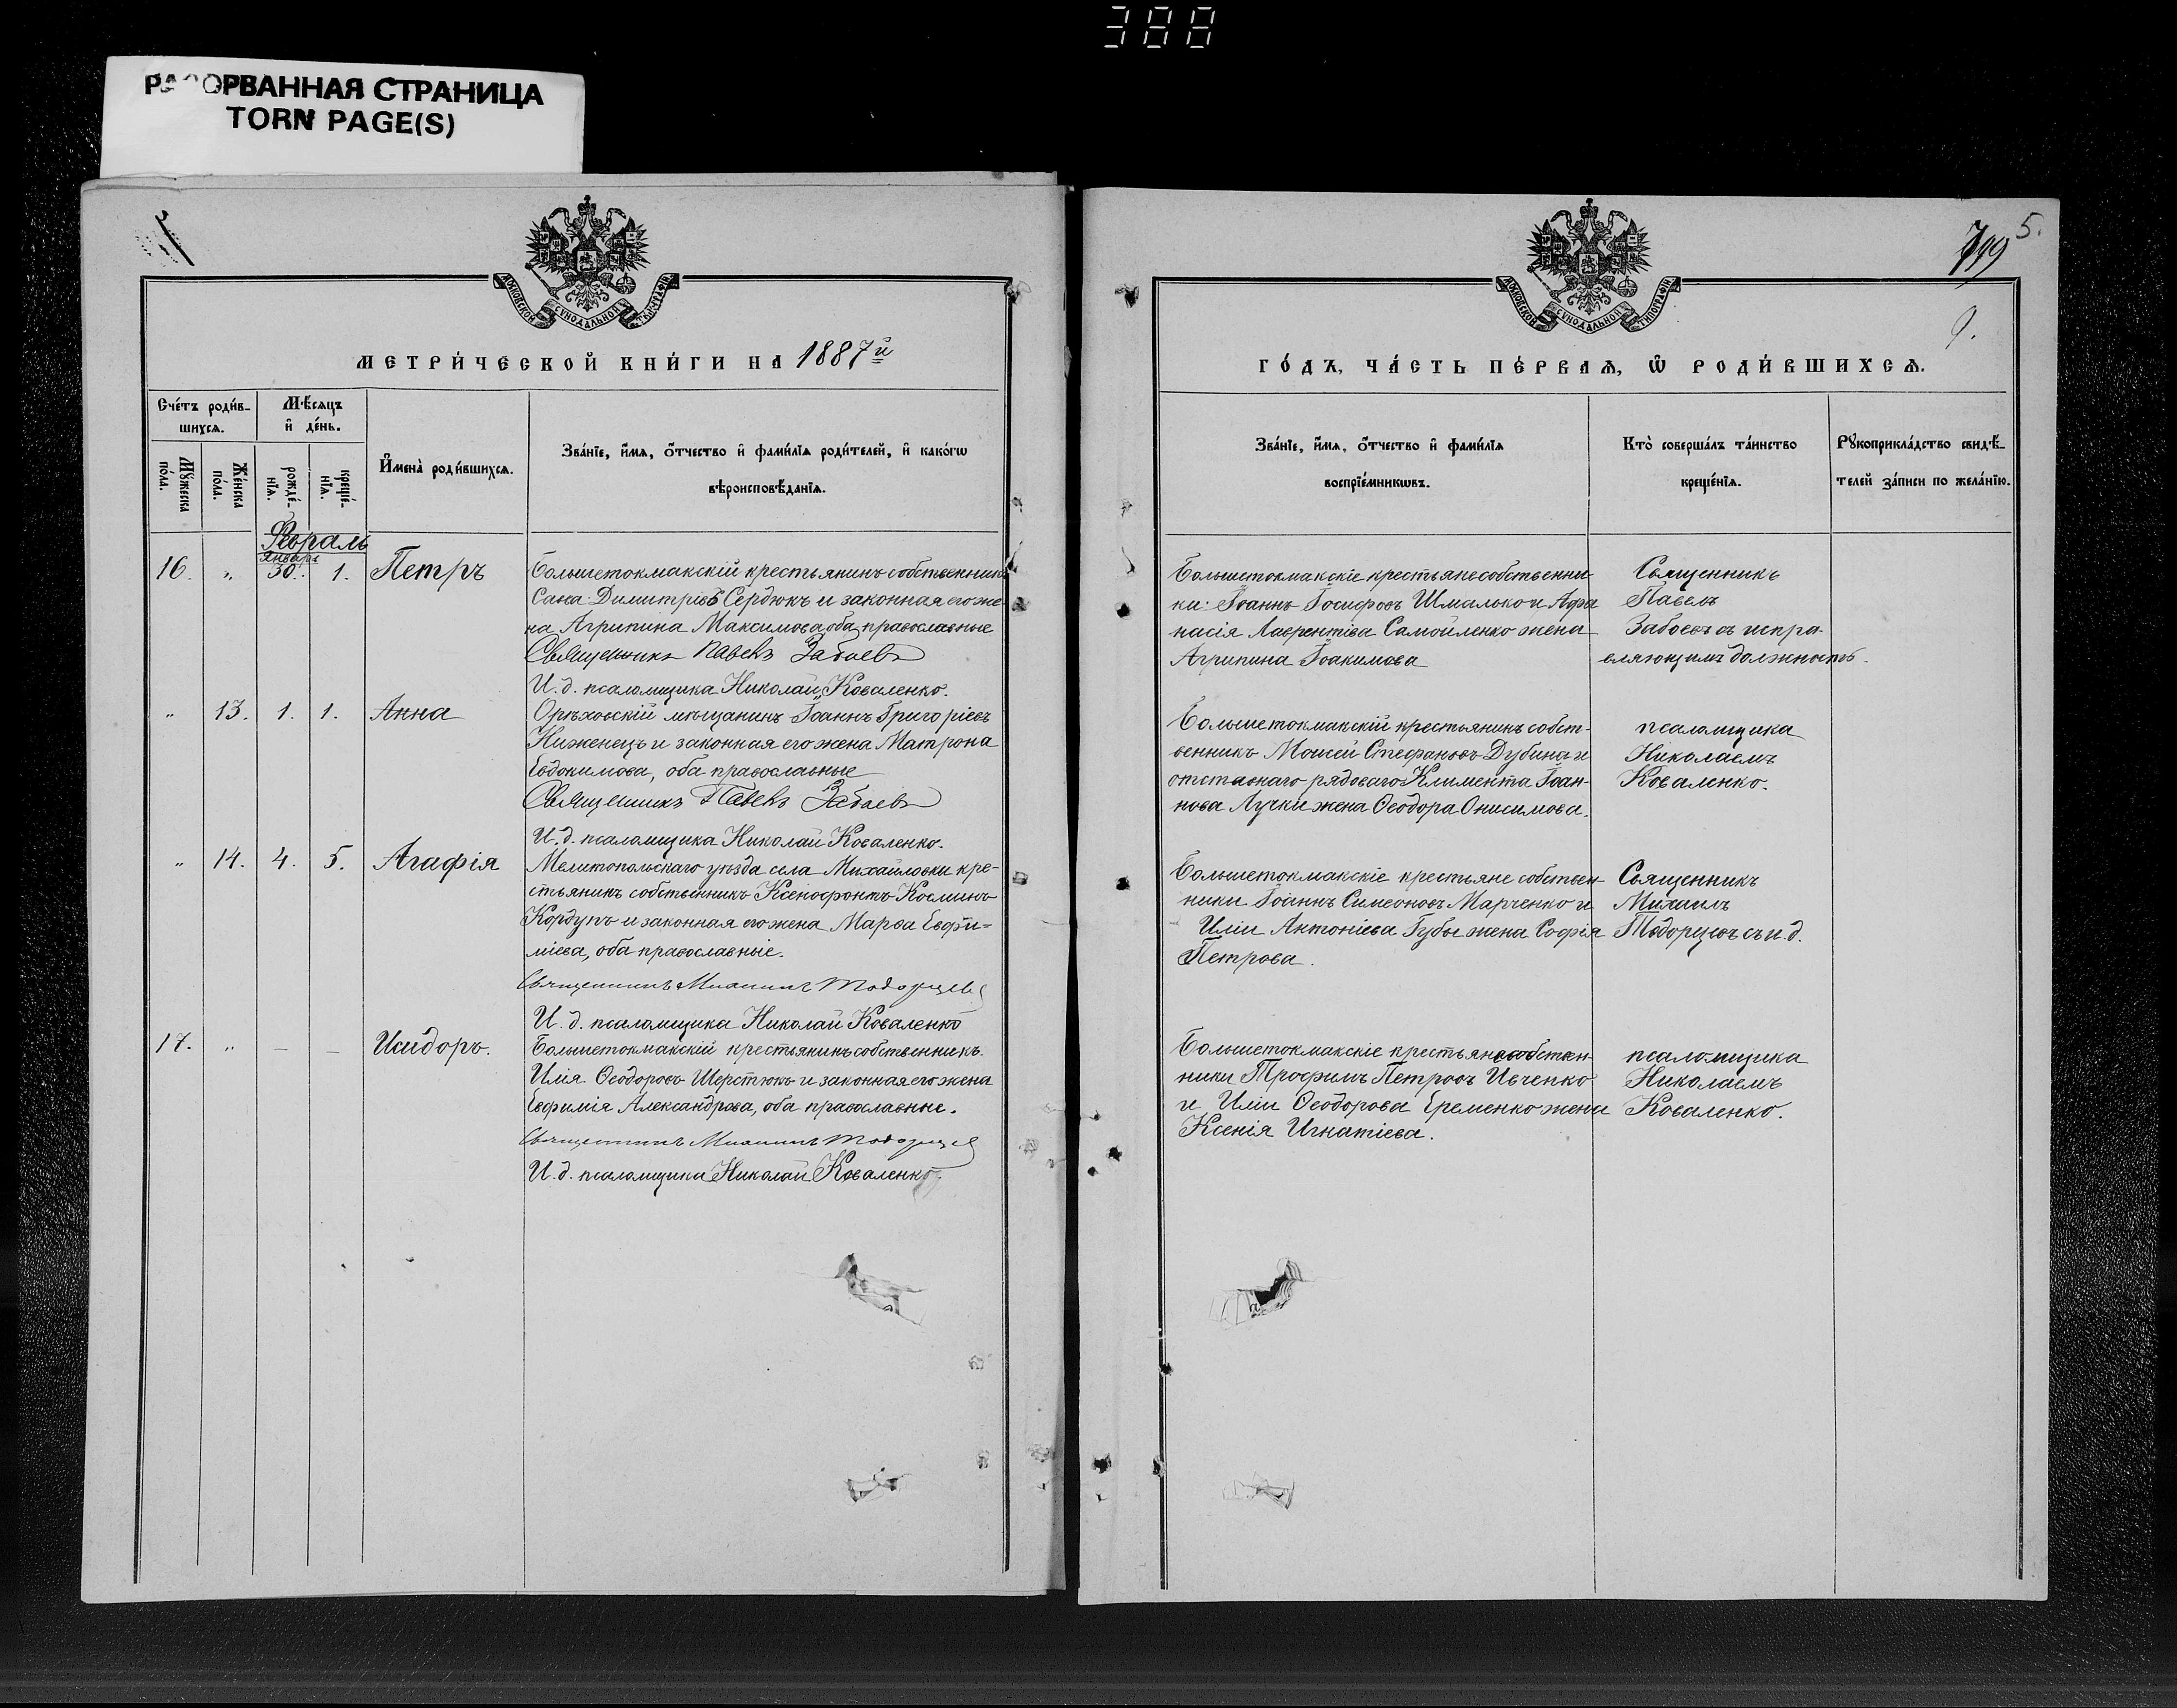 388
РАЗОРВАННАЯ СТРАНИЦА
TORN PAGE(S)
МОСКОВСКОЙ СѴНОДАЛЬНОЙ ТИПОГРАФІИ
МЕТРИ́ЧЕСКОЙ КНИ́ГИ НА 1887й
Сче́тъ роди́в-
шихсѧ.
Мѣ́сѧцъ
и҆ де́нь.
И҆мена̀ роди́вшихсѧ.
Зва́нїе, и҆́мѧ, ѻ҆́тчество и҆ фами́лїѧ роди́телей, и҆ како́гѡ
вѣроисповѣ́данїѧ.
Мꙋ́жеска
по́ла.
Же́нска
по́ла.
рожде́-
нїѧ.
креще́-
нїѧ.
Февраль
Январь
16. „ 30. 1. Петръ
Большетокмакскій крестьянинъ собственникъ
Савва Димитріевъ Сердюкъ и законная его же-
на Агрипина Максимова, оба православные
Священникъ Павелъ Забаевъ
И. д. псаломщика Николай Коваленко.
„ 13. 1. 1. Анна
Орѣховскій мѣщанинъ Іоаннъ Григоріевъ
Ниженецъ и законная его жена Матрона
Евдокимова, оба православные
Священникъ Павелъ Забаевъ
И. д. псаломщика Николай Коваленко.
„ 14. 4. 5. Агафія
Мелитопольскаго уѣзда села Михайловки кре-
стьянинъ собственникъ Ксенофонтъ Косминъ
Кордунъ и законная его жена Марѳа Евфи-
міева, оба православніе.
Священникъ Михаилъ Тодорцевъ
И. д. псаломщика Николай Коваленко
17. „ – – Исидоръ.
Большетокмакскій крестьянинъ собственникъ
Илія Ѳеодоровъ Шерстюкъ и законная его жена
Евфимія Александрова, оба православные.
Священникъ Михаилъ Тодорцевъ
И. д. псаломщика Николай Коваленко.
5.
719
МОСКОВСКОЙ СѴНОДАЛЬНОЙ ТИПОГРАФІИ
9.
ГО́ДЪ, ЧА́СТЬ ПЕ́РВАѦ, Ѡ҆ РОДИ́ВШИХСѦ.
Зва́нїе, и҆́мѧ, ѻ҆́тчество и҆ фами́лїѧ
воспрїе́мникѡвъ.
Кто̀ соверша́лъ та́инство
креще́нїѧ.
Рꙋкоприкла́дство свидѣ́-
телей за́писи по жела́нїю.
Большетокмакскіе крестьяне собственни-
ки: Іоаннъ Іосифовъ Шмалько и Афа-
насія Лаврентіева Самойленко жена
Агрипина Іоакимова
Священникъ
Павелъ
Забаевъ съ испра-
вляющимъ должность
Большетокмакскій крестьянинъ собст-
венникъ Моисей Стефановъ Дубина и
отставнаго рядоваго Климента Іоан-
нова Лучки жена Ѳеодора Онисимова.
псаломщика
Николаемъ
Коваленко.
Большетокмакскіе крестьяне собствен-
ники Іоаннъ Симеоновъ Марченко и
Иліи Антоніева Губы жена Софія
Петрова.
Священникъ
Михаилъ
Тодорцевъ съ и. д.
Большетокмакскіе крестьяне собствен-
ники Трофимъ Петровъ Ивченко
и Иліи Ѳеодорова Еременко жена
Ксенія Игнатіева.
псаломщика
Николаемъ
Коваленко.